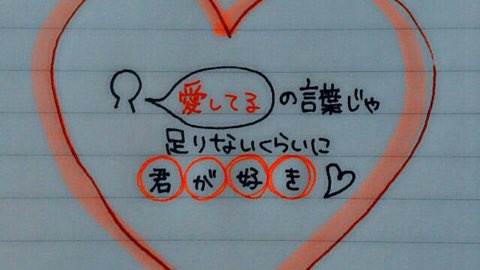 愛してるの言葉じゃ
足りないくらいに
君が好き♡